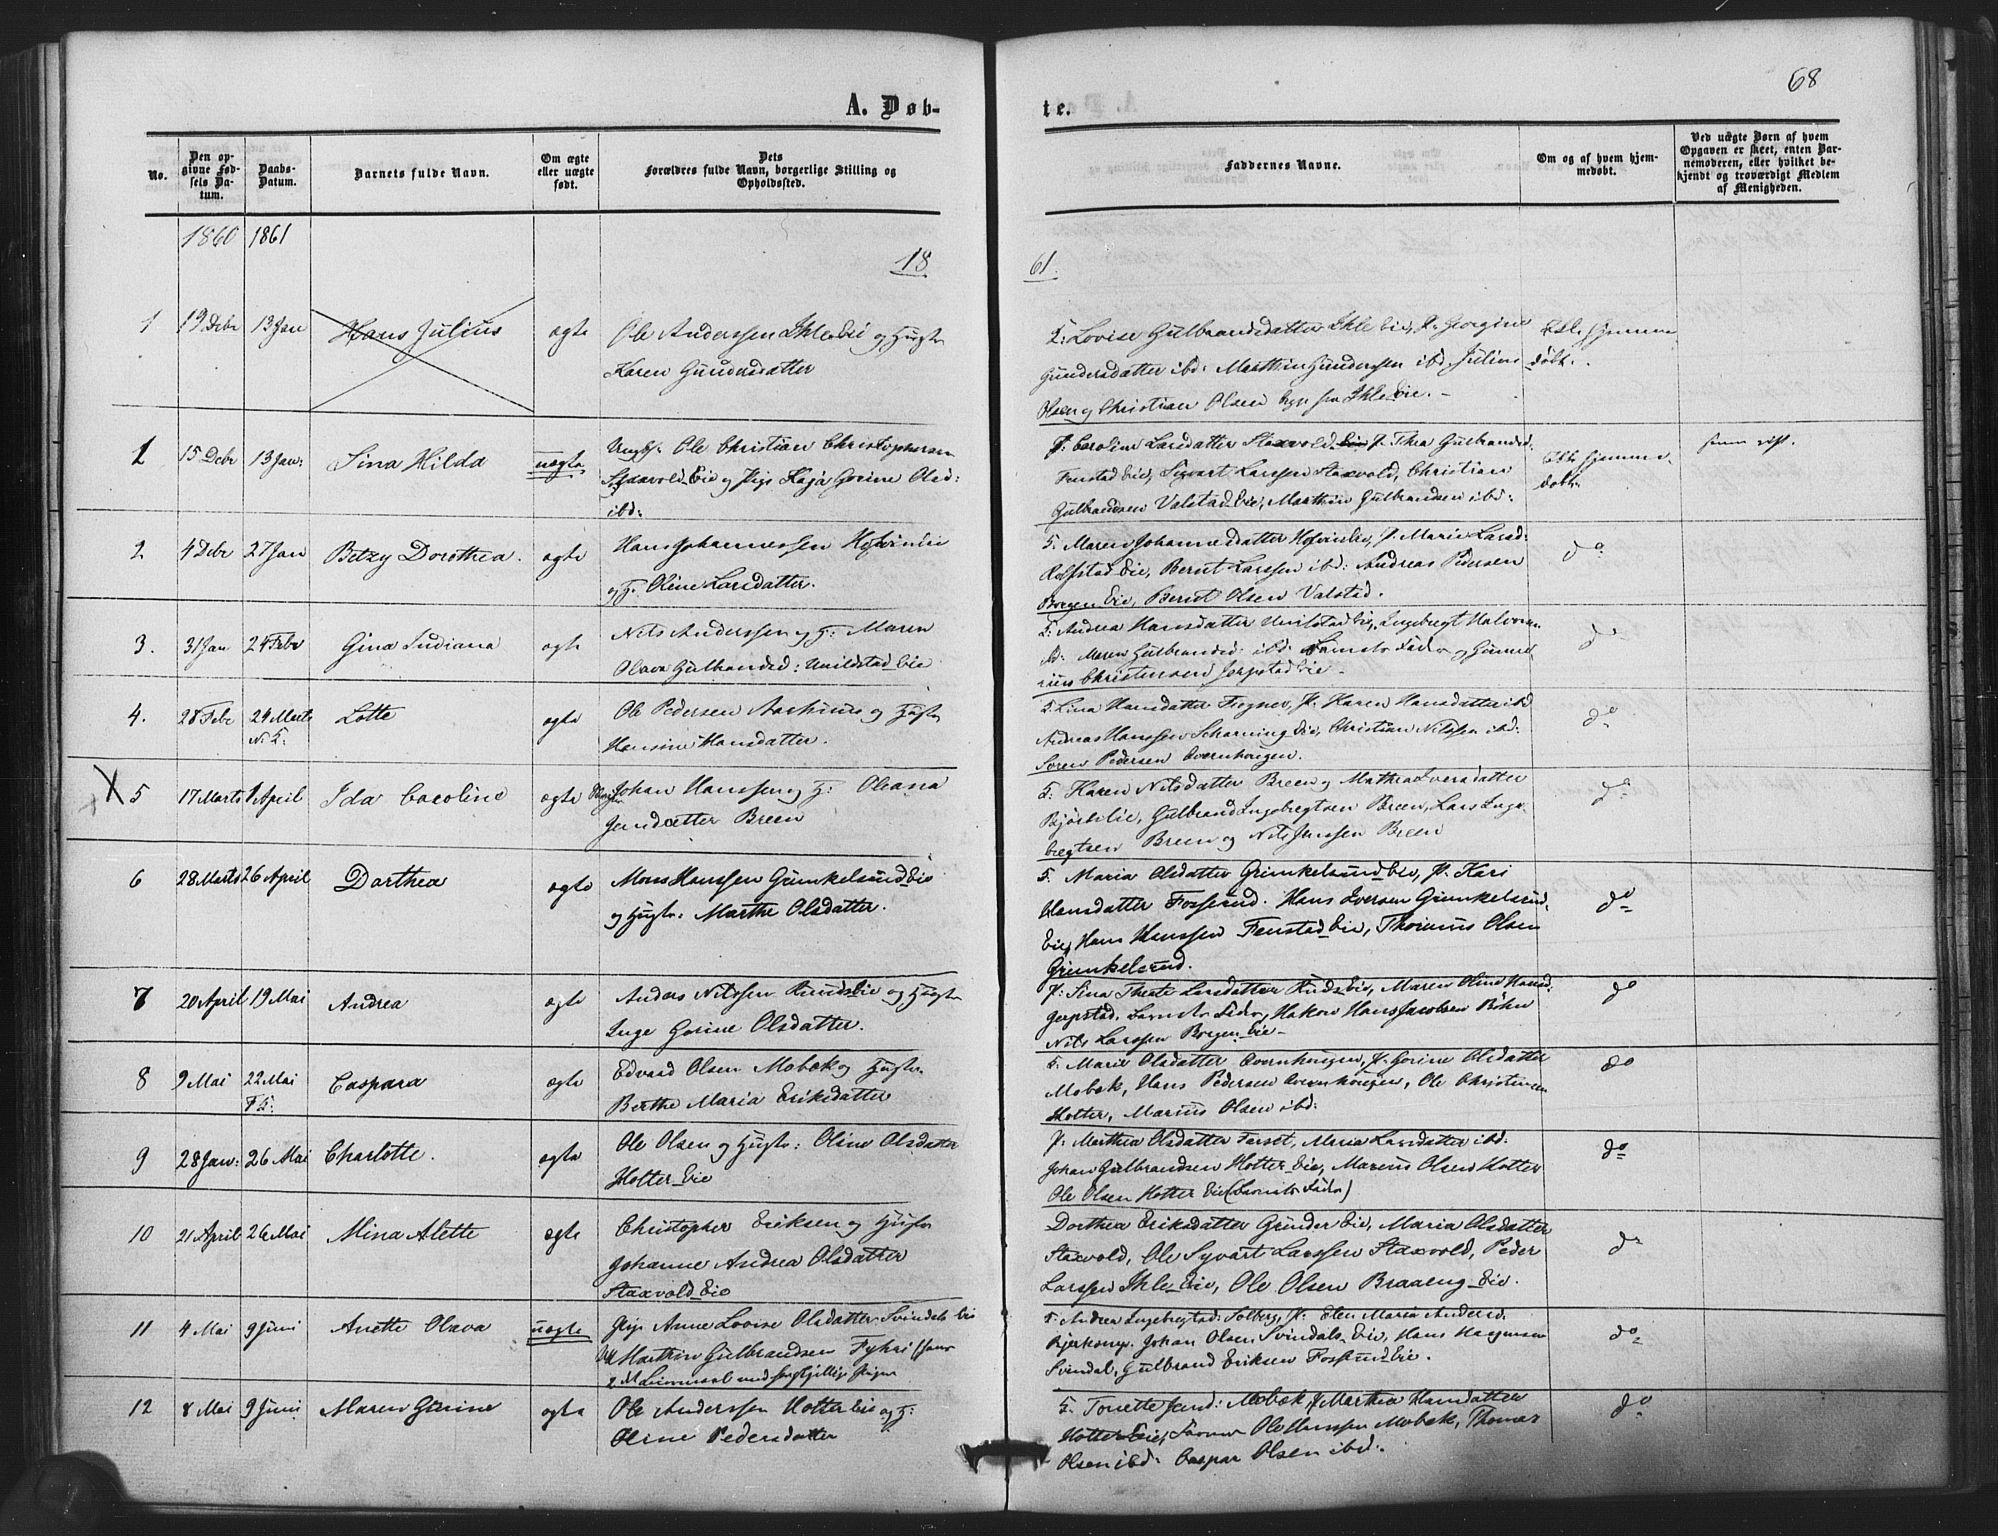 68
A. Døb-
te.
No.
Den op-
givne Fød-
sels Da-
tum.
Daabs-
Datum.
Barnets fulde Navn.
Om ægte
eller uægte
født.
Dets
Forældres fulde Navn, borgerlige Stilling og
Opholdsted.
Faddernes Navne.
Om og af hvem hjem-
medøbt.
Ved uægte Børn af hvem
Opgaven er skeet, enten Bar-
nemoderen, eller hvilket be-
kjendt og troværdigt Medlem
af Menigheden.
1860 1861
18
61.
1 19 Debr 13 Jan Hans Julius ægte
Ole Anderssen Ihle Eie og Hustr
Karen Gundersdatter
Lovise Gulbrandsdatter Ihle Eie, P. Georgine
Gundersdatter ibd: Marthin Gunderssen ibd, Julius
Olsen og Christian Olsen Ihle Eie.
Ikke hjemme
døbt.
1 15 Debr 13 Jan: Sina Hilda uægte
Ungk: Ole Christian Christophersen
Staxvold Eie og Pige Kaja Gorine Olsd:
ibd:
P: Caroline Larsdatter Staxvold P. Thea Gulbrandsd:
Fenstad Eie, Sigvart Larssen Staxvold, Christian
Gulbrandsen Valstad Eie, Marthin Gulbrandsen ibd:
Ikke hjemme-
døbt.
2 4 Debr 27 Jan Betzy Dorothea. ægte
Hans Johannessen Hofvineie
og H. Oline Larsdatter.
Maren Johannesdatter Hofvineie, P. Marie Larsd:
Rolfstad Eie, Bernt Larssen ibd: Andreas Pedersen
Borgen Eie, Bernt Olsen Valstad.
do
3. 31 Jan 24 Febr Gina Indiana ægte
Nils Anderssen og H: Maren
Olava Gulbrandsd: Unildstad Eie
Andrea Hansdatter Unilstad Eie, Ingebregt Halvorsen
Maren Gulbrandsd: ibd: Barnets Fader og Gunne-
rius Christensen Jerpstad Eie.
do
4. 28 Febr 24 Marts Lotte ægte
Ole Pedersen Aashuus og Hustr
Hansine Hansdatter.
Lina Hansdatter Fegner, P. Karen Hansdatter ibd
Andreas Hanssen Scharning Eie, Christian Nilssen ibd:
Søren Pedersen Overnhougen.
do
X 5 17 Marts 1 April Ida Caroline ægte
Johan Hanssen og H: Oleana
Jensdatter Breen
Karen Nilsdatter Breen og Mathea Iversdatter
Gulbrand Ingebregtsen Breen, Lars Inge-
bregtsen Breen og Nils Jenssen Breen
do
6 28 Marts 26 April Dorthea ægte
Mons Hanssen Grimkelsrud Eie
og Hustr: Marthe Olsdatter.
Maria Olsdatter Grimkelsrud Eie, P. Kari
Hansdatter Fosserud. Hans Iversen Grimkelsrud
Eie, Hans Hanssen Fenstad Eie, Thomas Olsen
Grimkelsrud.
do
7 20 April 19 Mai Andrea ægte
Anders Nilssen Ruuds Eie og Hustr
Inge Gorine Olsdatter.
P: Sina Theate Larsdatter Ruds Eie, Maren Oline Hansd:
Jerpstad. Barnets Fader, Hakon Hans Jacobsen Bøhn
Nils Larssen Borgen Eie
do
8 9 Mai 22 Mai Caspara ægte
Edvard Olsen Mobæk og Hustr
Berthe Maria Eriksdatter
Marie Olsdatter Overnhougen, P. Gorine Olsdatter
Mobæk, Hans Pedersen Overnhougen, Ole Christensen
Hotter, Marius Olsen ibd:
do
9 28 Jan: 26 Mai Charlotte. ægte
Ole Olsen og Hustr: Oline Olsdatter
Hotter Eie
P: Marthea Olsdatter Farset, Maria Larsdatter ibd:
Johan Gulbrandsen Hotter Eie, Marius Olsen Hotter
Ole Olsen Hotter Eie (Barnets Fader)
do
10 21 April 26 Mai Mina Alette ægte
Christopher Eriksen og Hustr
Johanne Andrea Olsdatter
Staxvold Eie
Dorthea Eriksdatter Gunder Eie, Maria Olsdatter
Staxvold, Ole Syvart Larssen Staxvold, Peder
Larssen Ihle Eie, Ole Olsen Braaeng Eie.
do
11 4 Mai 9 Juni Anette Olava uægte
Pige Anne Lovise Olsdatter Svindals Eie
Marthin Gulbrandsen Fyhri
2 Leiermaal med forskjellige Piger
Andrea Ingebregtsd: Solberg, P: Elen Maria Andersd.
Johan Olsen Svindals Eie, Hans Hagman
Svindal, Gulbrand Eriksen Fosserud Eie.
do
12 8 Mai 9 Juni Maren Gurine ægte
Ole Anderssen Hotter Eie og H:
Oline Pedersdatter
Mobæk, P Marthea Hansdatter
Hotter Eie, Ole Hanssen Mobæk, Thomas
Olsen ibd: Caspar Olsen ibd:
do